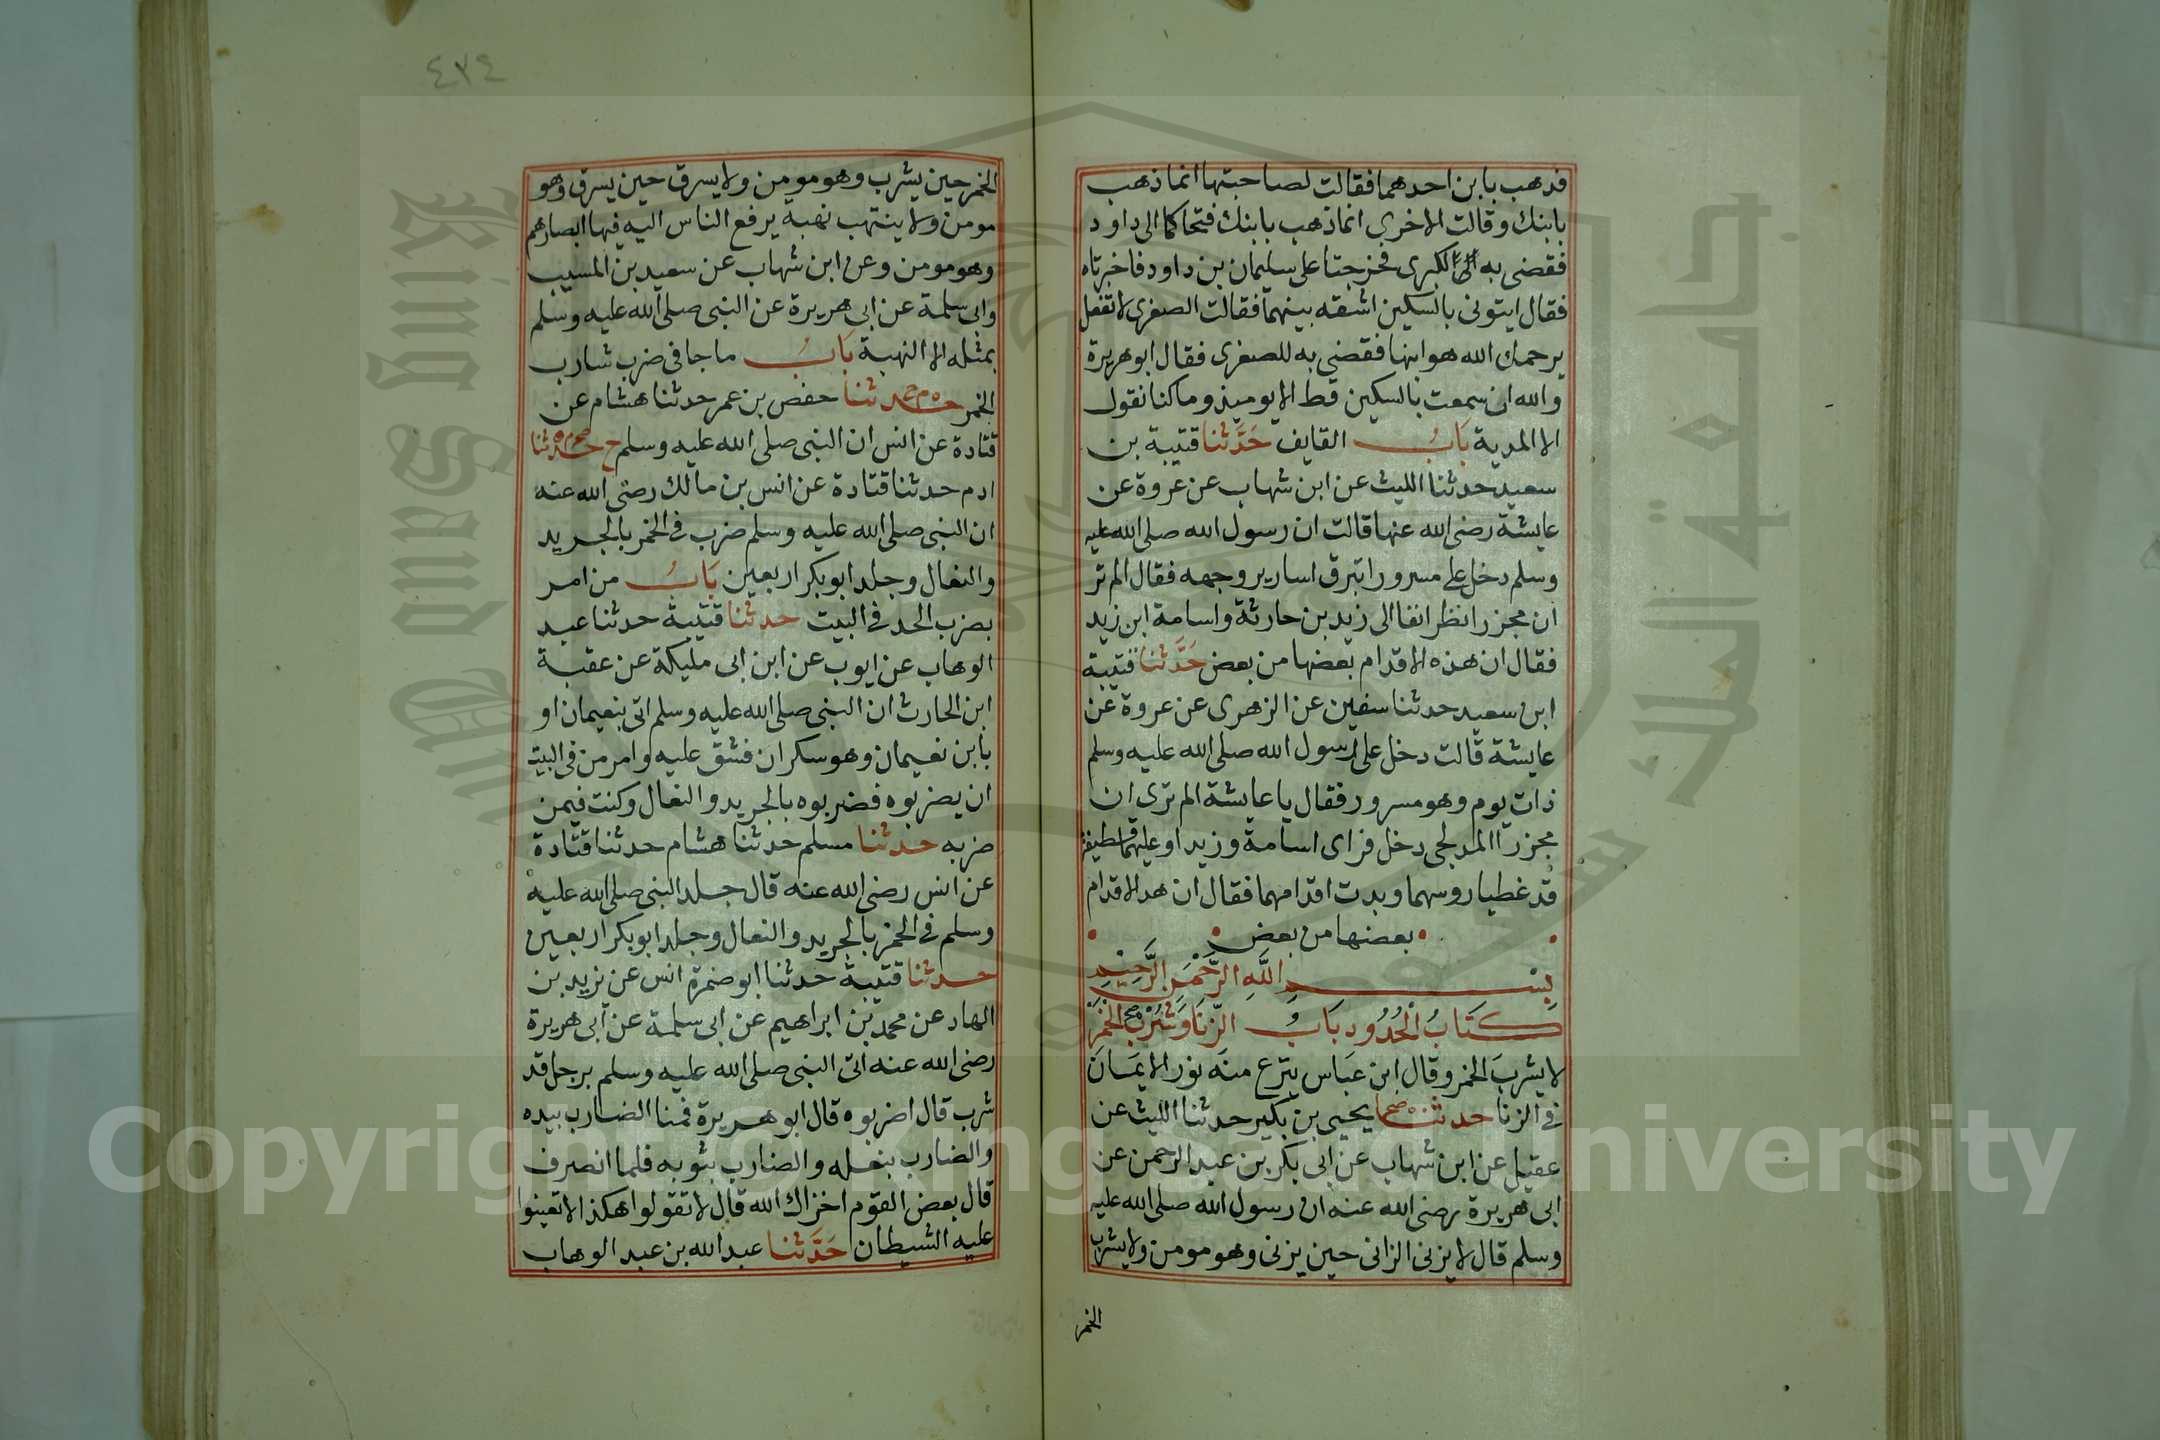 فذهب بابن احدهما فقالت لصاحبتها انما ذهب
بابنك وقالت الاخرى انما ذهب بابنك فتحاكما الى داود
فقضى به الكبرى فخرجتا على سليمان بن داود فاخبرتاه
فقال ايتونى بالسكين اشقه بينهما فقالت الصغرى لا تفعل
يرحمك الله هو ابنها فقضى به للصغرى فقال ابو هريرة
والله ان سمعت بالسكين قط الا يوميذ وما كنا نقول
الا المدية باب القايف حدثنا قتيبة بن
سعيد حدثنا الليث عن ابن شهاب عن عروة عن
عايشة رضى الله عنها قالت ان رسول الله صلى الله عليه
وسلم دخل على مسرورا تبرق اسارير وجهه فقال الم تر
ان مجزرا نظر انفا الى زيد بن حارثة واسامة ابن زيد
فقال ان هذه الاقدام بعضها من بعض حدثنا قتيبة
ابن سعيد حدثنا سفين عن الزهرى عن عروة عن
عايشة قالت دخل على رسول الله صلى الله عليه وسلم
ذات يوم وهو مسرور فقال يا عايشة الم ترى ان
مجزرا المدلجى دخل فراى اسامة وزيدا وعليهما قطيفة
قد غطيا روسهما وبدت اقدامهما فقال ان هذه الاقدام
بعضها من بعض
بسم الله الرحمن الرحيم
كتاب الحدود باب الزنا وشرب الخمر
لا يشرب الخمر وقال ابن عباس ينزع منه نور الايمان
فى الزنا حدثنا يحيى بن بكير حدثنا الليث عن
عقيل عن ابن شهاب عن ابى بكر بن عبد الرحمن عن
ابى هريرة رضى الله عنه ان رسول الله صلى الله عليه
وسلم قال لا يزنى الزانى حين يزنى وهو مومن ولا يشرب
الخمر
٤٢٤
الخمر حين يشرب وهو مومن ولا يسرق حين يسرق وهو
مومن ولا ينتهب نهبة يرفع الناس اليه فيها ابصارهم
وهو مومن وعن ابن شهاب عن سعيد بن المسيب
وابى سلمة عن ابى هريرة عن النبى صلى الله عليه وسلم
بمثله الا النهبة باب ما جا فى ضرب شارب
الخمر حدثنا حفص بن عمر حدثنا هشام عن
قتادة عن انس ان النبى صلى الله عليه وسلم ح حدثنا
ادم حدثنا قتادة عن انس بن مالك رضى الله عنه
ان النبى صلى الله عليه وسلم ضرب فى الخمر بالجريد
والنعال وجلد ابو بكر اربعين باب من امر
بضرب الحد فى البيت حدثنا قتيبة حدثنا عبد
الوهاب عن ايوب عن ابن ابى مليكة عن عقبة
ابن الحارث ان النبى صلى الله عليه وسلم اتى بنعيمان او
بابن نعيمان وهو سكران فشق عليه وامر من فى البيت
ان يضربوه فضربوه بالجريد والنعال وكنت فيمن
ضربه حدثنا مسلم حدثنا هشام حدثنا قتادة
عن انس رضى الله عنه قال جلد النبى صلى الله عليه
وسلم فى الخمر بالجريد والنعال وجلد ابو بكر اربعين
حدثنا قتيبة حدثنا ابو ضمرة انس عن يزيد بن
الهاد عن محمد بن ابراهيم عن ابى سلمة عن ابى هريرة
رضى الله عنه اتى النبى صلى الله عليه وسلم برجل قد
شرب قال اضربوه قال ابو هريرة فمنا الضارب بيده
والضارب بنعله والضارب بثوبه فلما انصرف
قال بعض القوم اخزاك الله قال لا تقولوا هكذا لا تعينوا
عليه الشيطان حدثنا عبد الله بن عبد الوهاب
جامعة الملك سعود
King Saud University
Copyright © King Saud University